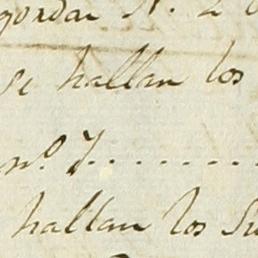 gordar N. 2
se hallan los
no. 7..........
hallan los Su